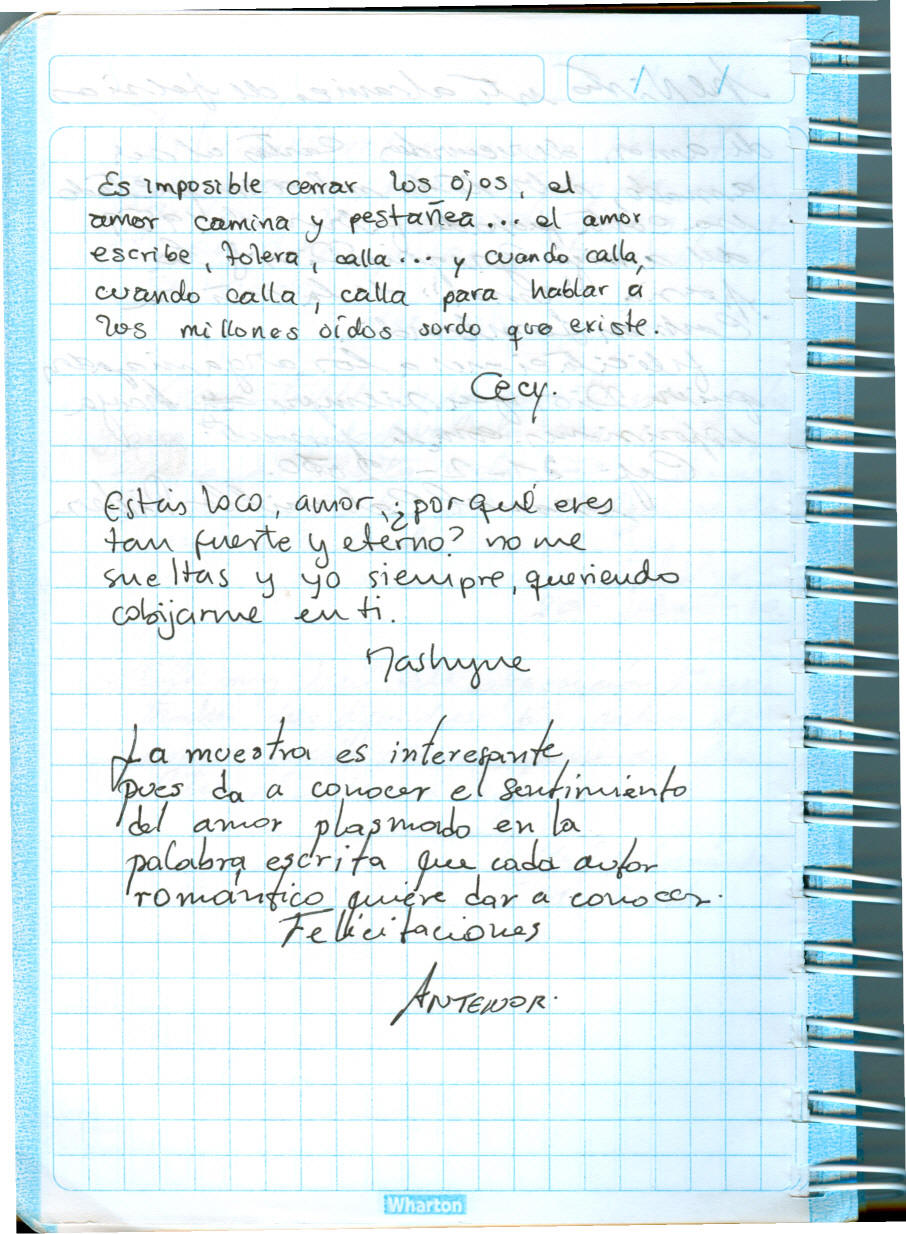 Es imposible cerrar los ojos, el
amor camina y pestañea... el amor
escribe, tolera, calla... y cuando calla,
cuando calla, calla para hablar a
los millones oídos sordo que existe.
Cecy.
Estás loco, amor, ¿por qué eres
tan fuerte y etérno? no me
sueltas y yo siempre, queriendo
cobijarme en ti.
Mashyne
La muestra es interesante,
pues da a conocer el sentimiento
del amor plasmado en la
palabra escrita que cada autor
romántico quiere dar a conocer.
Felicitaciones
ANTENOR.
Wharton